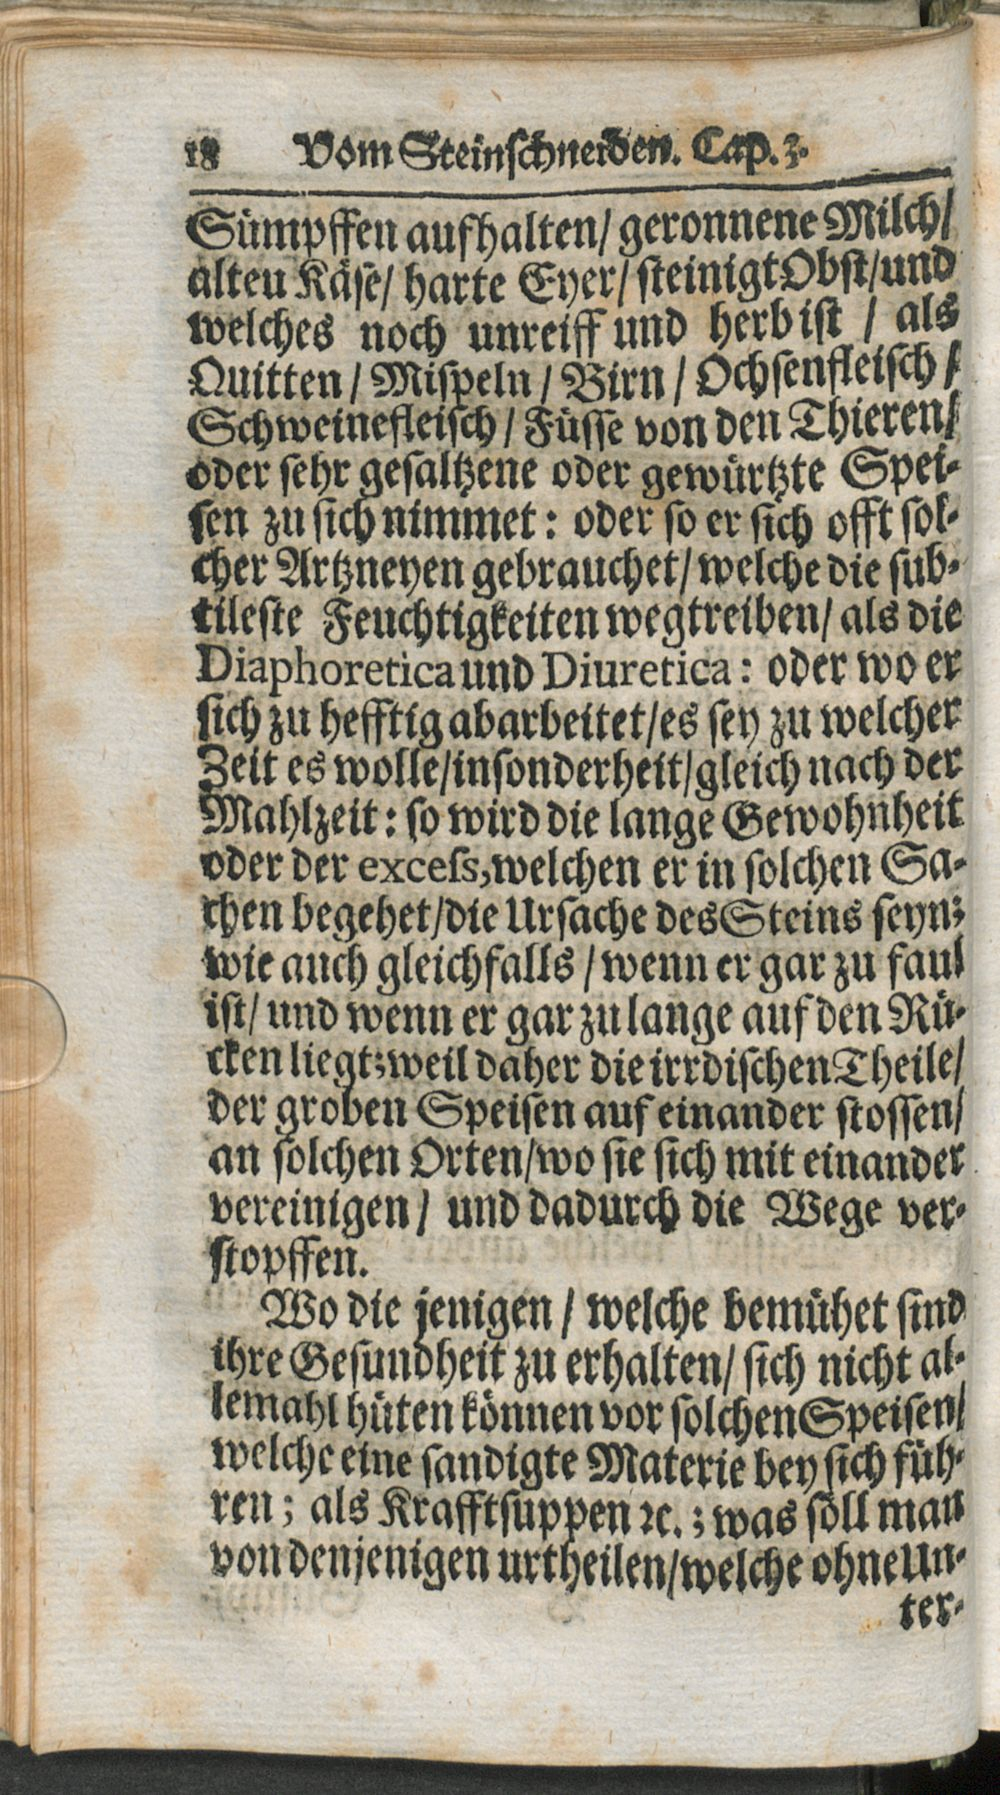 18 Vom Steinschneiden. Cap. 3.
Sümpffen aufhalten/ geronnene Milch/
alten Käse/ harte Eyer/ steinigt Obst/ und
welches noch unreiff und herb ist / als
Quitten / Mispeln / Birn / Ochsenfleisch /
Schweinefleisch / Füsse von den Thieren/
oder sehr gesaltzene oder gewürtzte Spei-
sen zu sich nimmet: oder so er sich offt sol-
cher Artzneyen gebrauchet/ welche die sub-
tileste Feuchtigkeiten wegtreiben/ als die
Diaphoretica und Diuretica: oder wo er
sich zu hefftig abarbeitet/ es sey zu welcher
Zeit es wolle/ insonderheit/ gleich nach der
Mahlzeit: so wird die lange Gewohnheit
oder der excess, welchen er in solchen Sa-
chen begehet/ die Ursache des Steins seyn;
wie auch gleichfalls / wenn er gar zu faul
ist/ und wenn er gar zu lange auf den Rü-
cken liegt; weil daher die irrdischen Theile/
der groben Speisen auf einander stossen/
an solchen Orten/ wo sie sich mit einander
vereinigen / und dadurch die Wege ver-
stopffen.
Wo die jenigen / welche bemühet sind
ihre Gesundheit zu erhalten/ sich nicht al-
lemahl hüten können vor solchen Speisen/
welche eine sandigte Materie bey sich füh-
ren; als Krafftsuppen ꝛc. ; was soll man
von denjenigen urtheilen/ welche ohne Un-
ter-